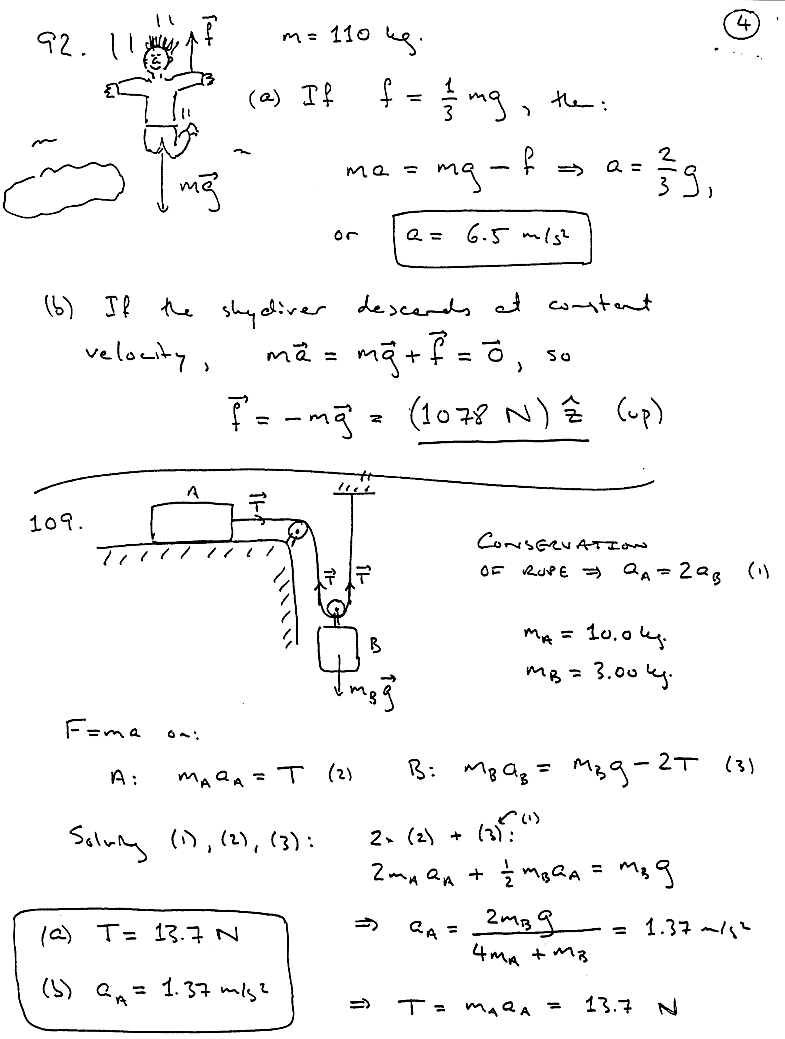 4
92. f⃗ m = 110 kg.
(a) If f = 1/3 mg, then:
mg⃗ ma = mg − f ⇒ a = 2/3 g,
or a = 6.5 m/s²
(b) If the skydiver descends at constant
velocity, ma⃗ = mg⃗ + f⃗ = 0⃗, so
f⃗ = −mg⃗ = (1078 N) ẑ (up)
109. A T⃗
CONSERVATION
OF ROPE ⇒ a_A = 2a_B (1)
T⃗ T⃗
m_A = 10.0 kg.
B m_B = 3.00 kg.
m_B g⃗
F = ma on:
A: m_A a_A = T (2) B: m_B a_B = m_B g − 2T (3)
Solving (1), (2), (3): 2 × (2) + (3): (1)
2m_A a_A + 1/2 m_B a_A = m_B g
(a) T = 13.7 N ⇒ a_A = 2m_B g / (4m_A + m_B) = 1.37 m/s²
(b) a_A = 1.37 m/s² ⇒ T = m_A a_A = 13.7 N